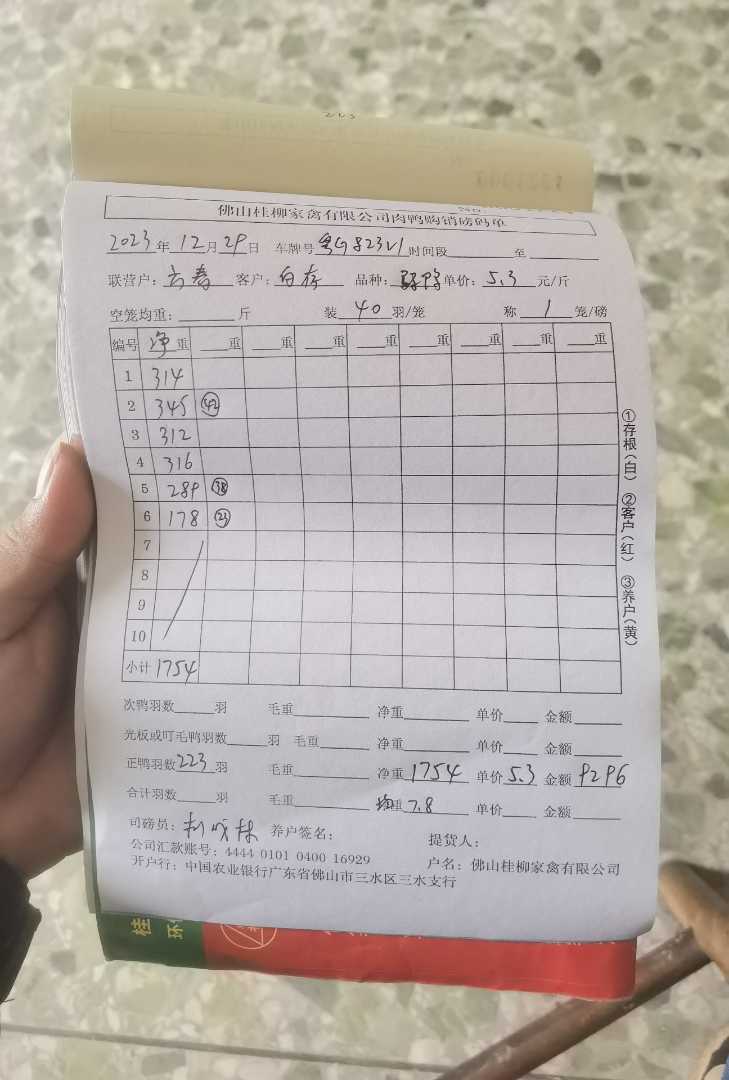 佛山桂柳家禽有限公司肉鸭购销磅码单
2023年12月29日 车牌号粤G823V1时间段 至
联营户: 客户:白存 品种: 单价:5.3元/斤
空笼均重: 斤 装40羽/笼 称1笼/磅
编号 净重 重 重 重 重 重 重 重 重
1 314
2 345 42
3 312
4 316
5 289 38
6 178 23
7
8
9
10
小计 1754
①存根(白) ②客户(红) ③养户(黄)
次鸭羽数 羽 毛重 净重 单价 金额
光板或叮毛鸭羽数 羽 毛重 净重 单价 金额
正鸭羽数223羽 毛重 净重1754 单价5.3 金额9296
合计羽数 羽 毛重 均重7.8 单价 金额
司磅员: 养户签名: 提货人:
公司汇款账号:4444 0101 0400 16929 户名:佛山桂柳家禽有限公司
开户行:中国农业银行广东省佛山市三水区三水支行
桂
环